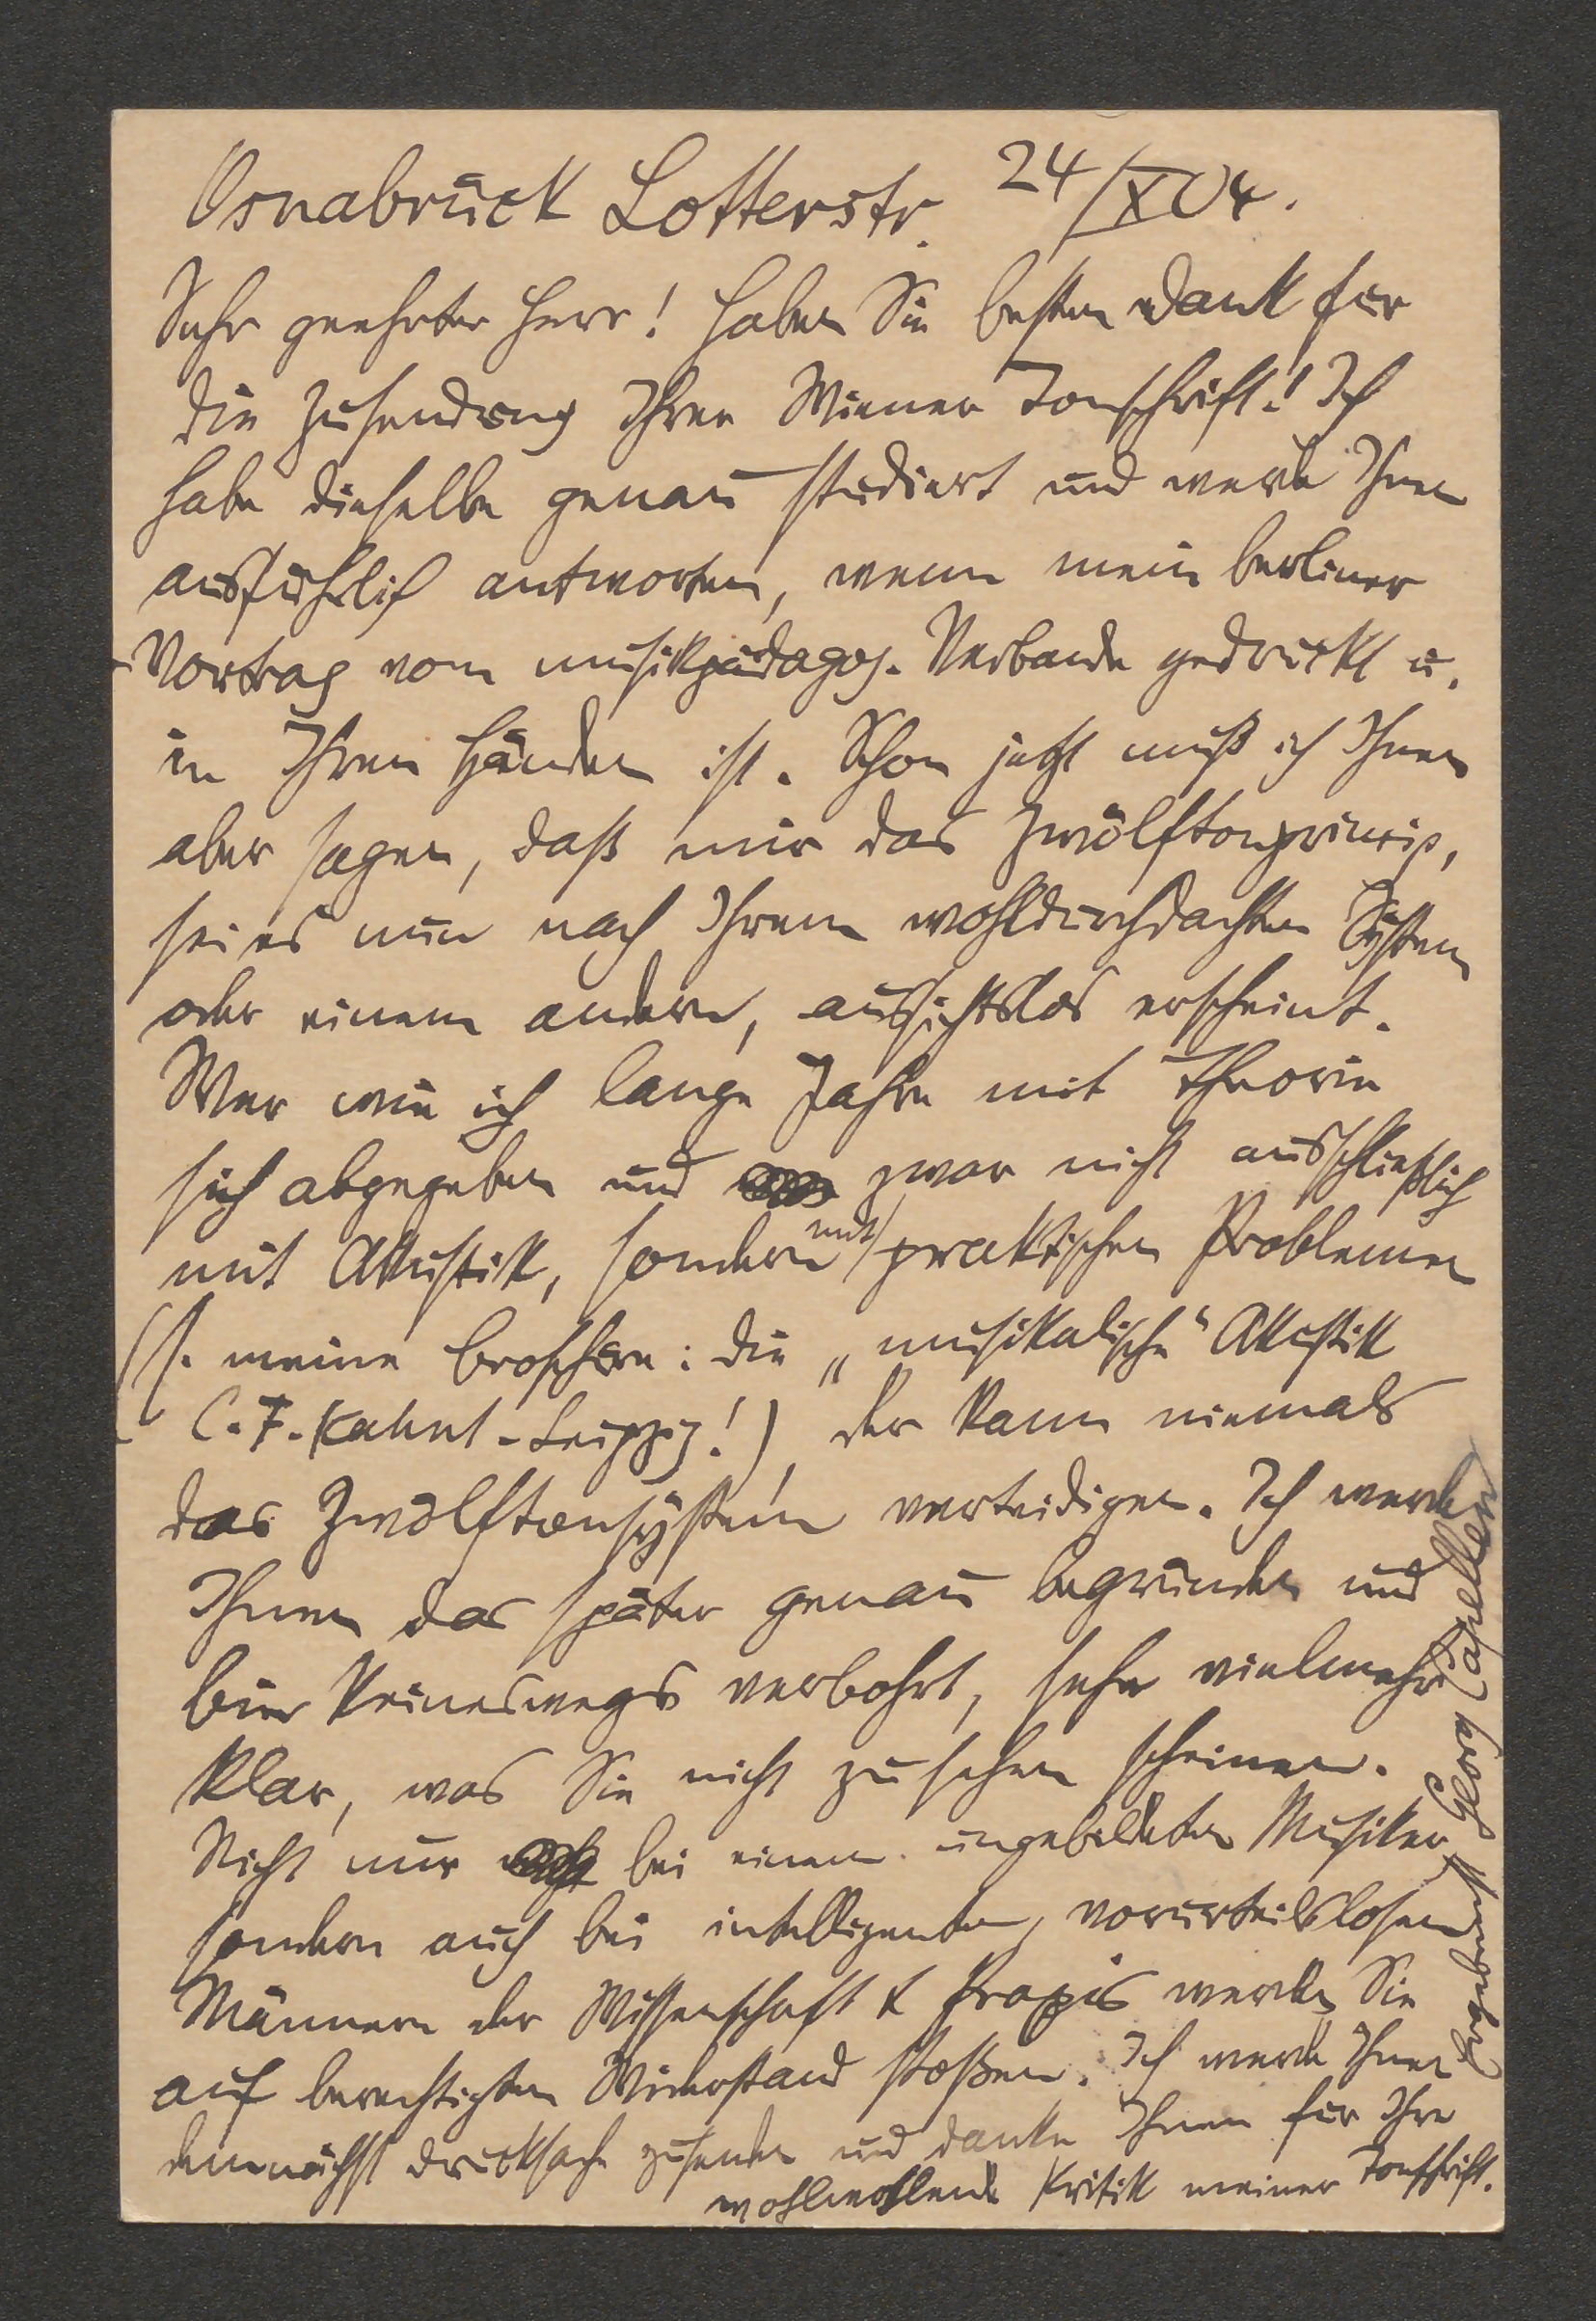 Osnabrück Lotterstr. 24/X 04.
Sehr geehrter Herr! Haben Sie besten Dank für
die Zusendung Ihrer Wiener Tonschrift! Ich
habe dieselbe genau studiert und werde Ihnen
ausführlich antworten, wenn mein Berliner
Vortrag vom musikpädagog. Verbande gedruckt u.
in Ihren Händen ist. Schon jetzt muß ich Ihnen
aber sagen, daß mir das Zwölftonprincip,
sei es nun nach Ihrem wohldurchdachten System
oder einem andern, aussichtslos erscheint.
Wer wie ich lange Jahre mit Theorie
sich abgegeben und zwar nicht ausschließlich
mit Akustik, sondern mit praktischen Problemen
(s. meine Broschüre: die „musikalische“ Akustik
C. F. Kahnt-Leipzig!), der kann niemals
das Zwölftonsystem verteidigen. Ich werde
Ihnen das später genau begründen und
bin keineswegs verbohrt, sehe vielmehr
klar, was Sie nicht zu sehen scheinen.
Nicht nur bei einem ungebildeten Musiker,
sondern auch bei intelligenten, vorurteilslosen
Männern der Wissenschaft & Praxis werden Sie
auf berechtigten Widerstand stoßen. Ich werde Ihnen
demnächst Drucksache zusenden und danke Ihnen für Ihre
wohlwollende Kritik meiner Tonschrift.
Ergebenst Georg Capellen